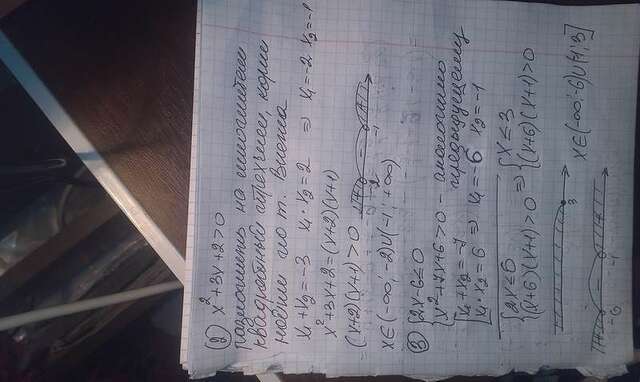 ② x²+3x+2>0
разложить на множители
квадратный трехчлен, корни
найти по т. Виета
x₁+x₂=-3 x₁·x₂=2 ⇒ x₁=-2 x₂=-1
x²+3x+2=(x+2)(x+1)
(x+2)(x+1)>0
-2 -1
x∈(-∞;-2)∪(-1;+∞)
③ {2x-6≤0
{x²+7x+6>0 - аналогично предыдущему
[x₁+x₂=-7
[x₁·x₂=6 ⇒ x₁=-6 x₂=-1
{2x≤6
{(x+6)(x+1)>0 ⇒ {x≤3
{(x+6)(x+1)>0
3
-6 -1
x∈(-∞;-6)∪(-1;3]